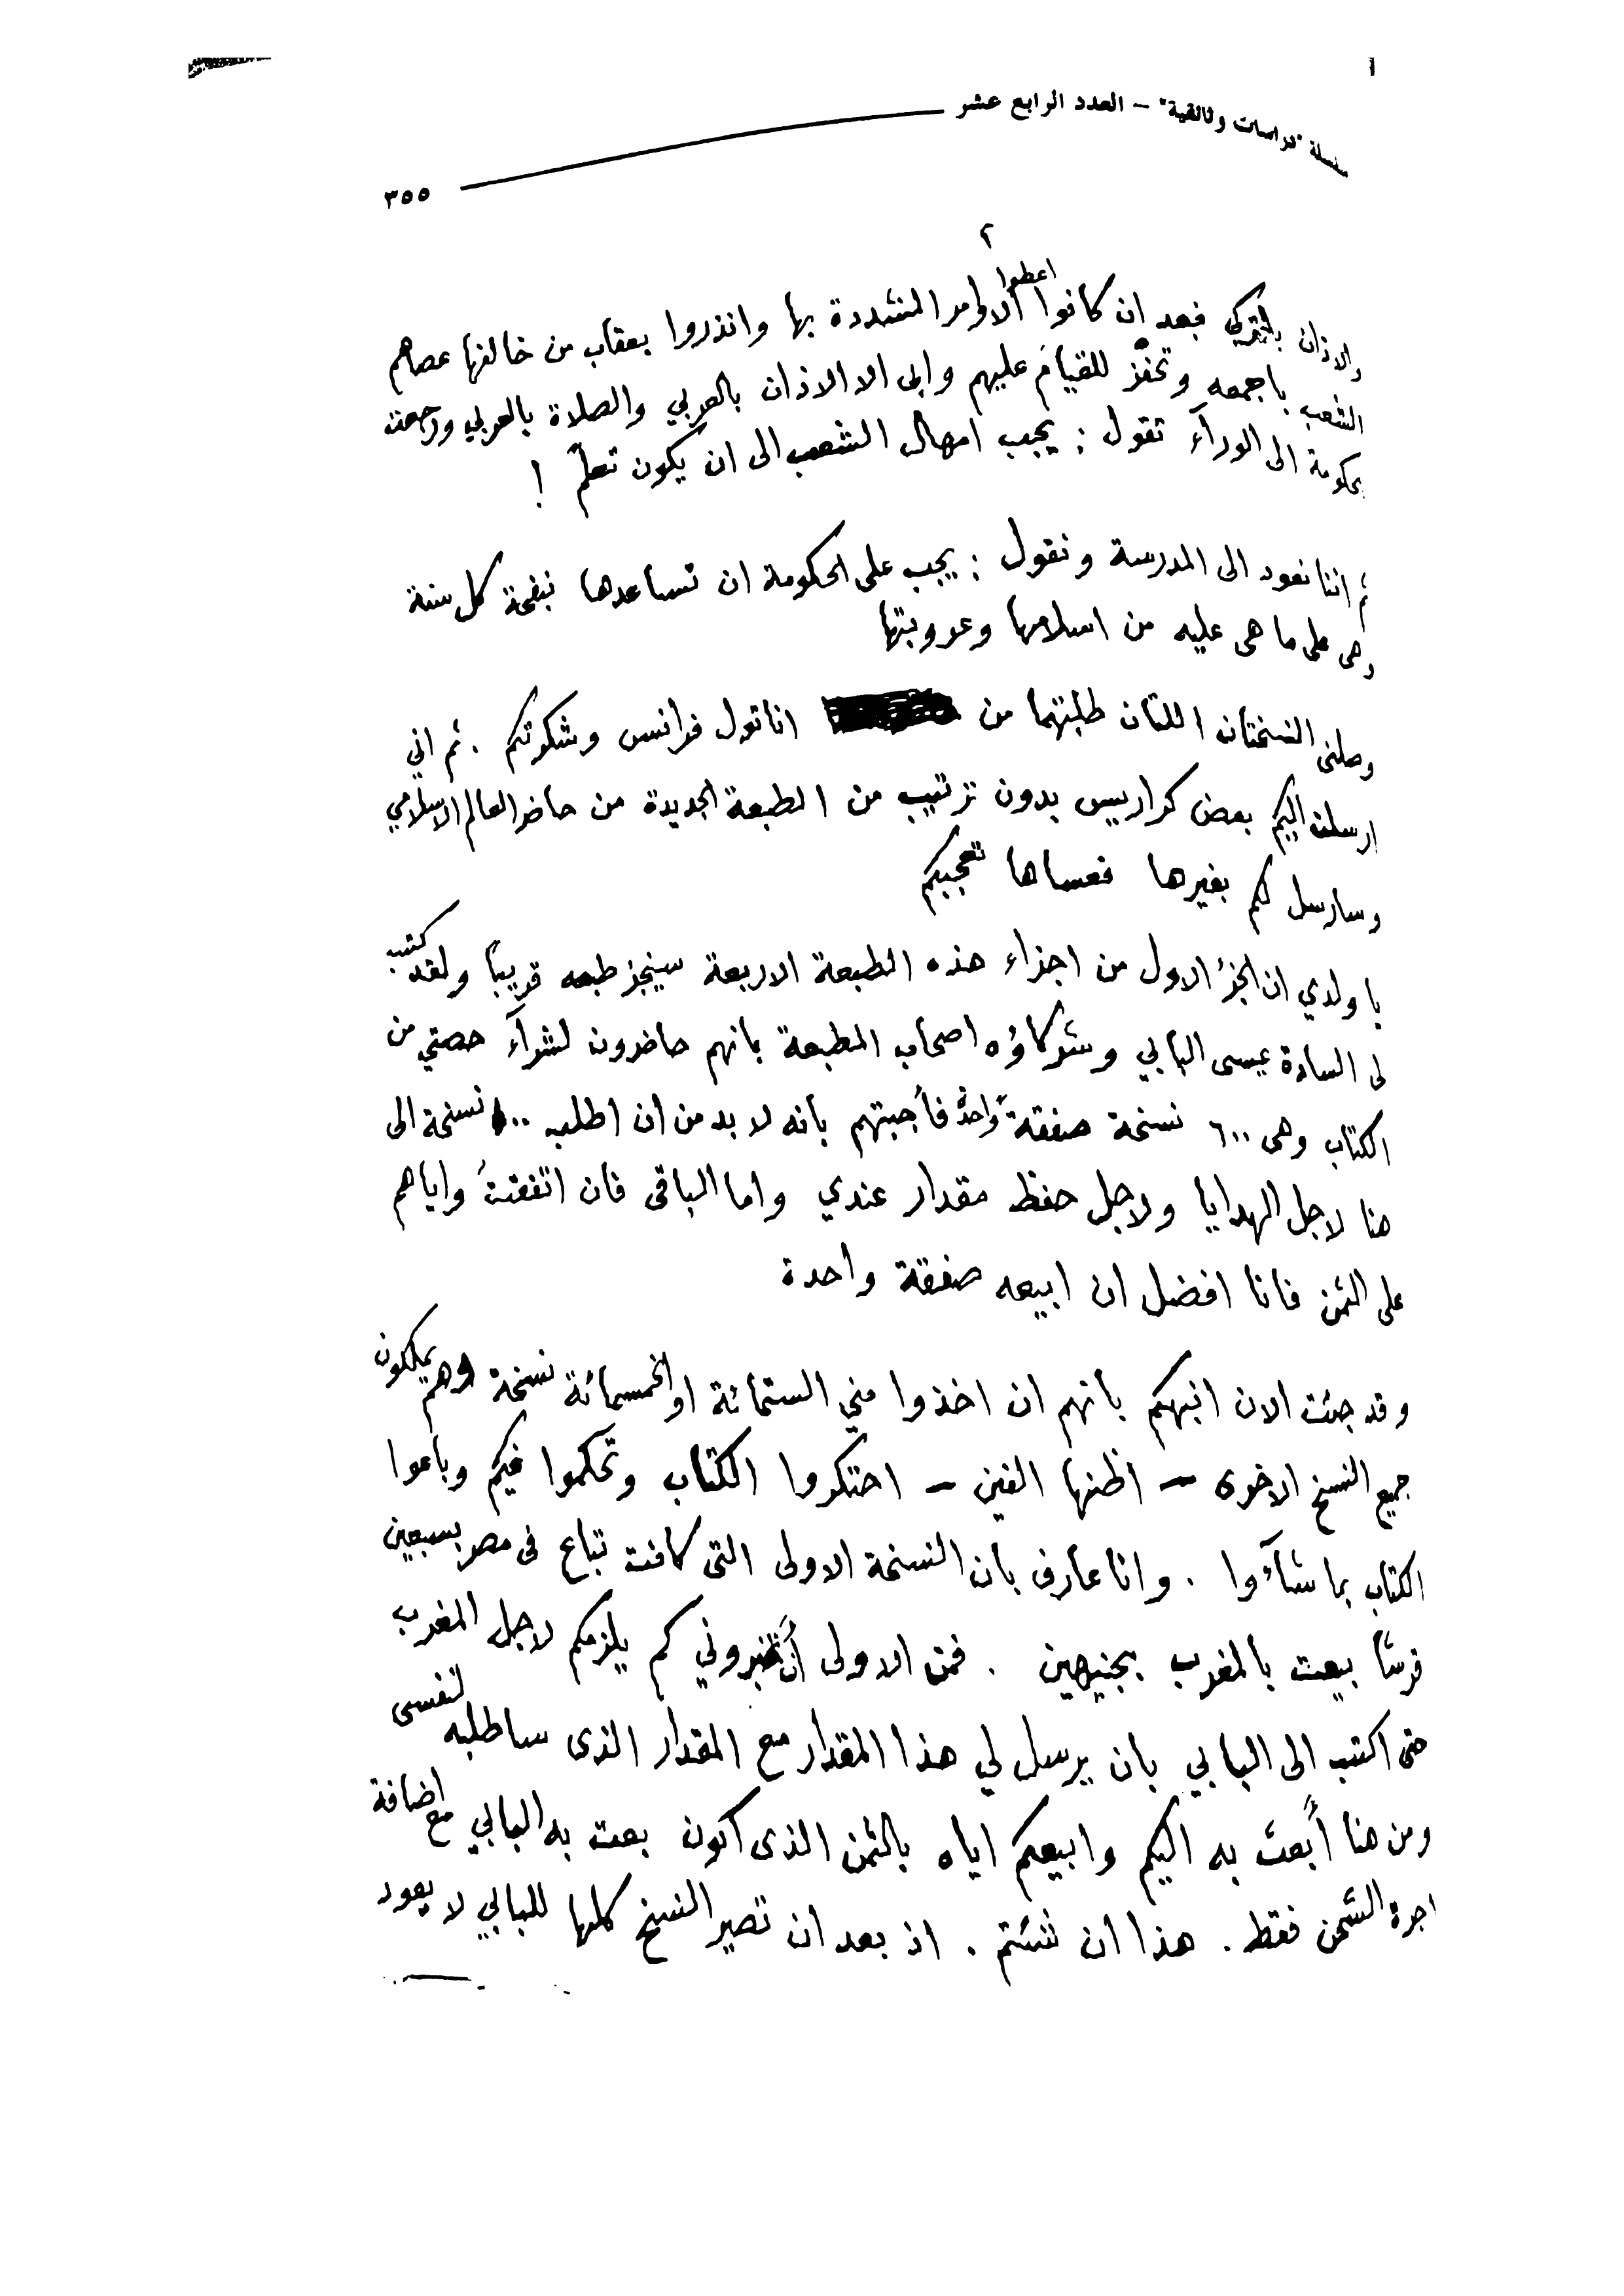 سلسلة "دراسات وثائقية" – العدد الرابع عشر
٣٥٥
٢
والاذان بالتركي فبعد ان كانوا اعطوا الاوامر المتشددة بها وانذروا بعقاب من خالفها عصاهم
الشعب باجمعه وتحفّز للقيام عليهم وابى الا الاذان بالعربي والصلاة بالعربي ورجعت
حكومة الى الورآء تقول : يجب امهال الشعب الى ان يكون تعلّم !
ثم اننا نعود الى المدرسة ونقول : يجب على الحكومة ان تساعدها بنفحة كل سنة
وهى على ما هى عليه من اسلامها وعروبتها
وصلنى النسختان اللتان طلبتهما من اناتول فرانس وشكرتكم . ثم اني
ارسلت اليكم بعض كراريس بدون ترتيب من الطبعة الجديدة من حاضر العالم الاسلامي
وسارسل لكم بغيرها فعساها تعجبكم
يا ولدي ان الجزء الاول من اجزاء هذه الطبعة الاربعة سينجز طبعه قريباً ولقد كتب
لى السادة عيسى البابي وشركاؤه اصحاب المطبعة بانهم حاضرون لشرآء حصتي من
الكتاب وهى ٦٠٠ نسخة صفقةً واحدةً فأجبتهم بانه لا بد من ان اطلب ١٠٠ نسخة الى
هنا لاجل الهدايا ولاجل حفظ مقدار عندي واما الباقى فان اتفقتُ واياهم
على الثمن فانا افضل ان ابيعه صفقة واحدة
وقد جئت الان انبهكم بانهم ان اخذوا مني الستمائة او الخمسمائة نسخة وهم يملكون
جميع النسخ الاخرى – اظنها الفين – احتكروا الكتاب وتحكموا فيكم وباعوا
الكتاب بما شآءوا . وانا عارف بان النسخة الاولى التى كانت تباع فى مصر بسبعين
قرشاً بيعت بالمغرب بجنيهين . فمن الاولى أن تخبروني كم يلزمكم لاجل المغرب
حتى اكتب الى البابي بان يرسل لي هذا المقدار مع المقدار الذى ساطلبه لنفسى
ومن هنا أبعث به اليكم وابيعكم اياه بالثمن الذى اكون بعت به البابي مع اضافة
اجرة الشحن فقط . هذا ان شئتم . اذ بعد ان تصير النسخ كلها للبابي لا يعود